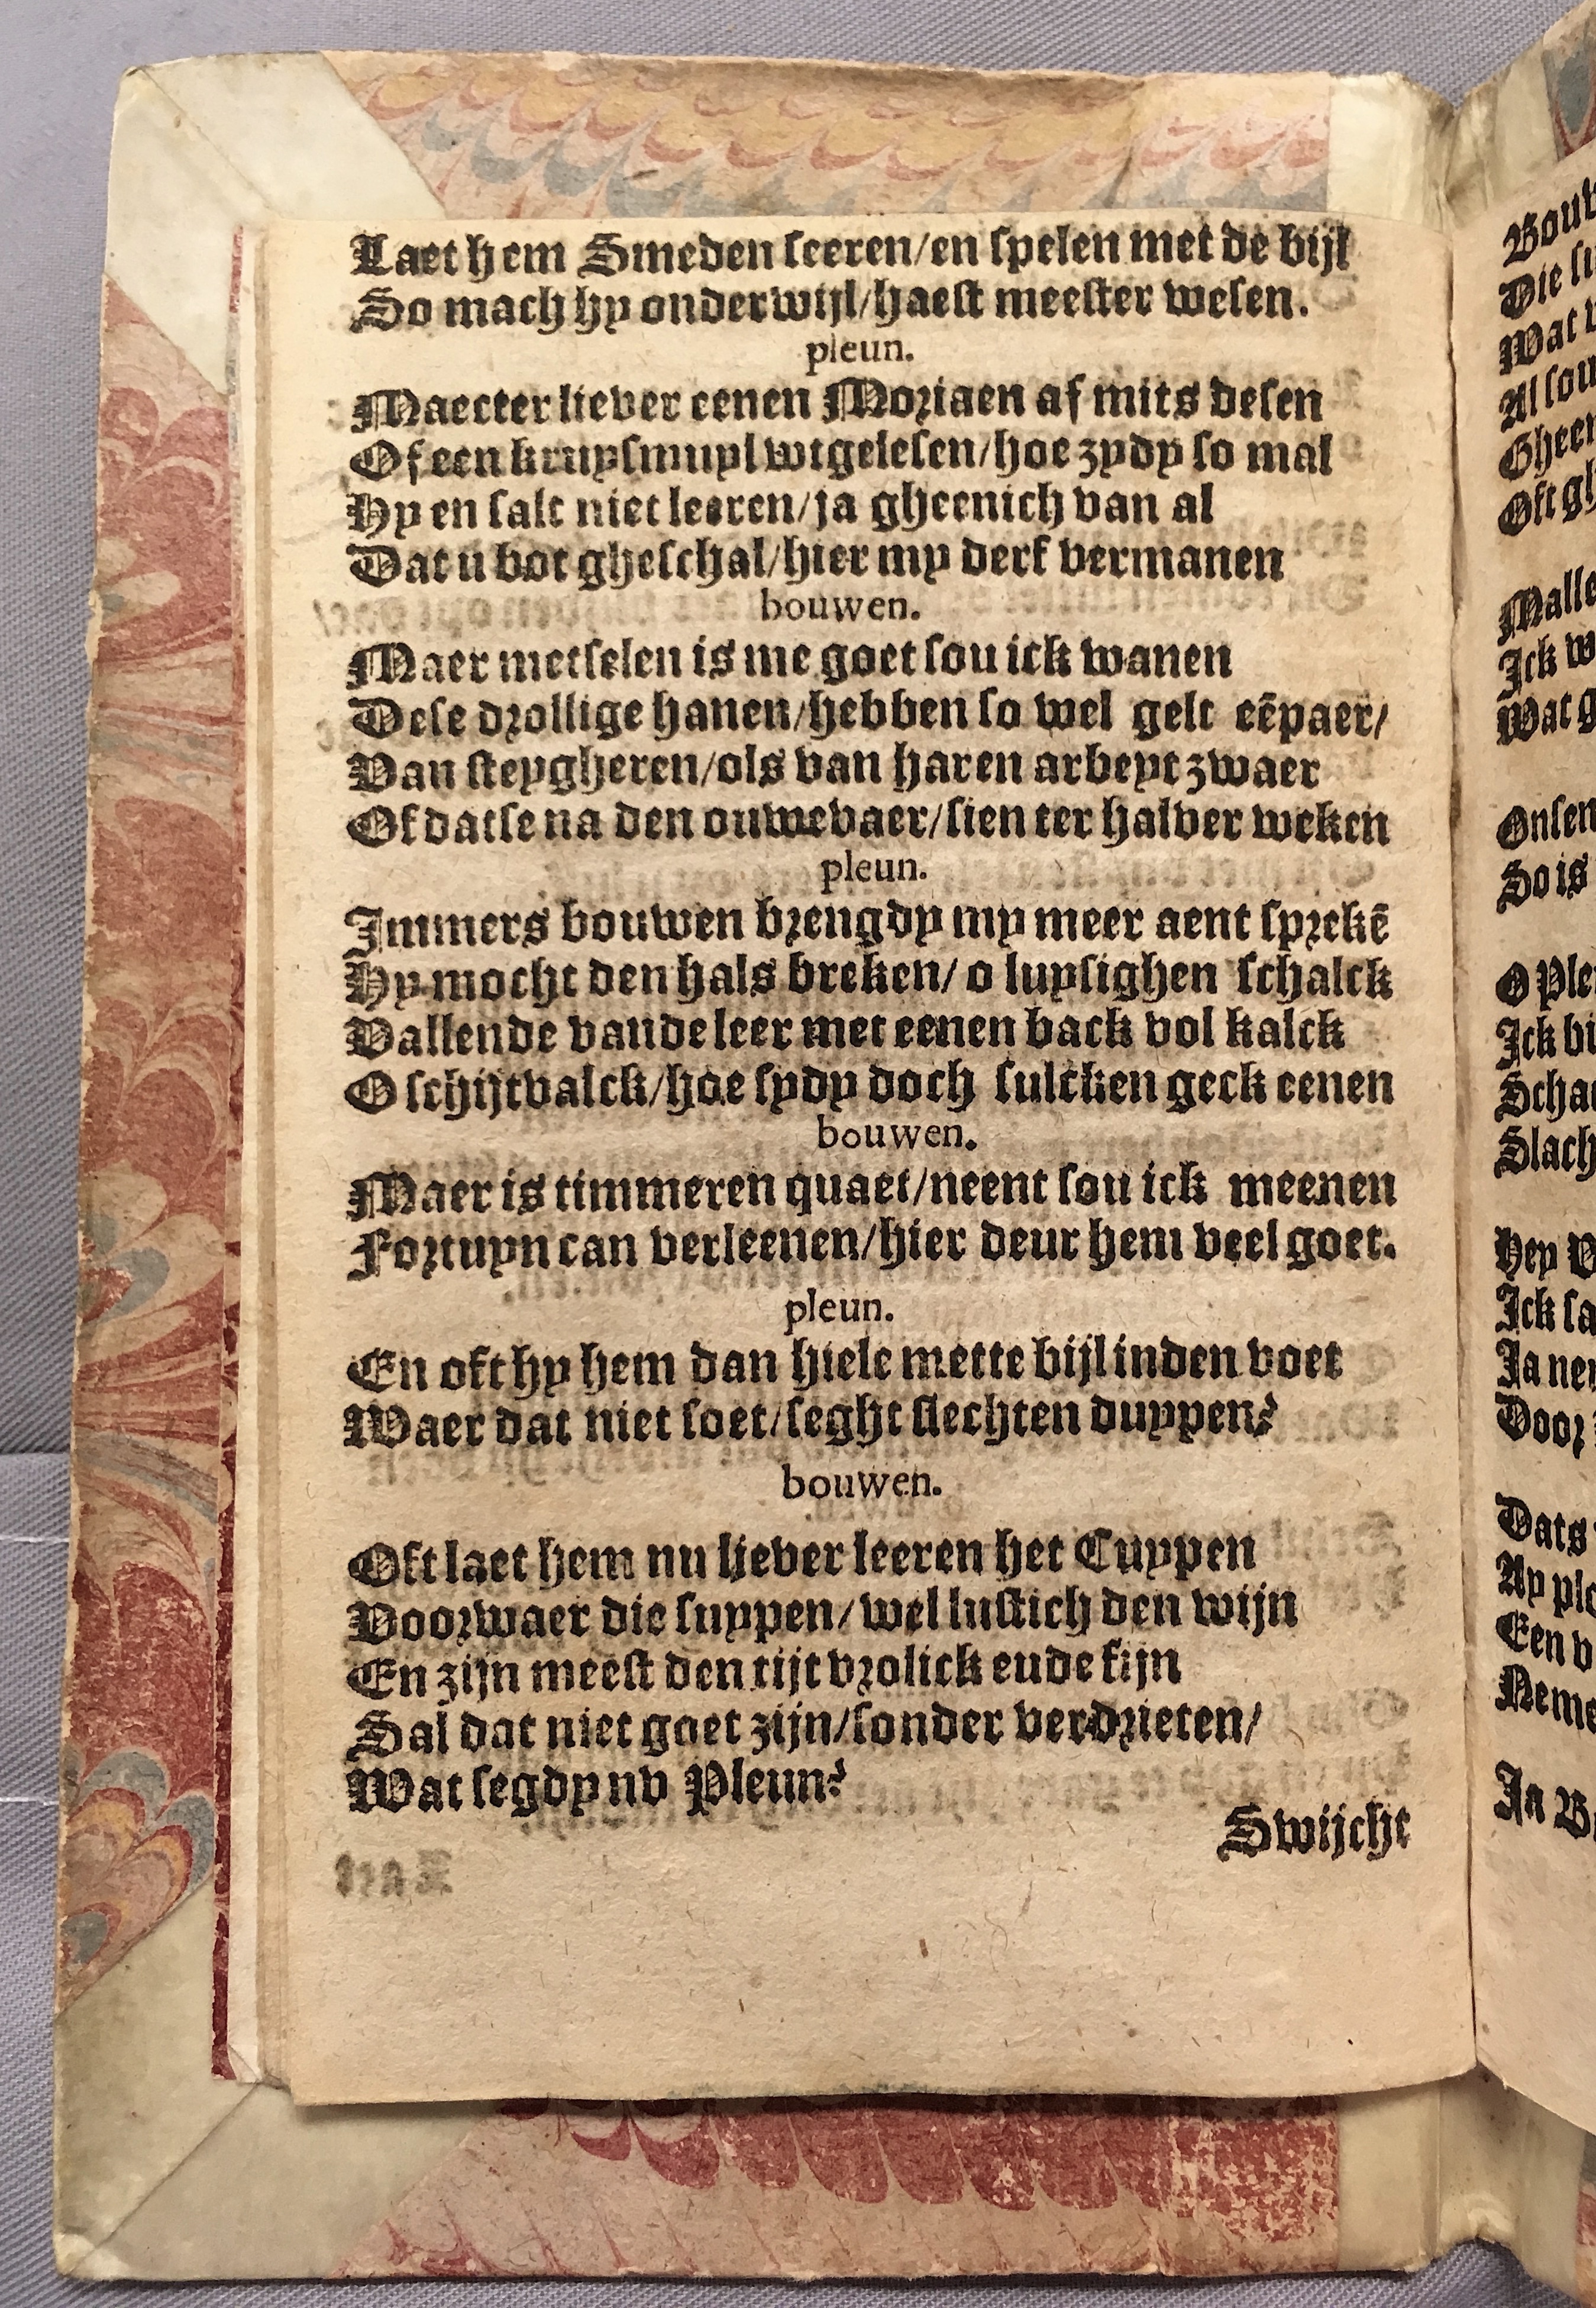 Laet hem Smeden leeren/en spelen met de bijl
So mach hy onderwijl/haest meester wesen.
pleun.
Maecter liever eenen Moriaen af mits desen
Of een kruysmuyl wtgelesen/hoe zydy so mal
Hy en salt niet leeren/ja gheenich van al
Dat u bot gheschal/hier my derf vermanen
bouwen.
Maer metselen is me goet sou ick wanen
Dese drollige hanen/hebben so wel gelt eẽpaer/
Van steygheren/ols van haren arbeyt zwaer
Of datse na den ouwevaer/sien ter halver weken
pleun.
Immers bouwen brengdy my meer aent sprekẽ
Hy mocht den hals breken/ o luysighen schalck
Vallende vande leer met eenen back vol kalck
O schijtvalck/hoe sydy doch sulcken geck eenen
bouwen.
Maer is timmeren quaet/neent sou ick meenen
Fortuyn can verleenen/hier deur hem veel goet.
pleun.
En oft hy hem dan hiele mette bijl inden voet
Waer dat niet soet/seght slechten duypen?
bouwen.
Oft laet hem nu liever leeren het Cuypen
Voorwaer die suypen/wel lustich den wijn
En zijn meest den tijt vrolick ende fijn
Sal dat niet goet zijn/sonder verdrieten/
Wat segdy nv Pleun?
Swijcht